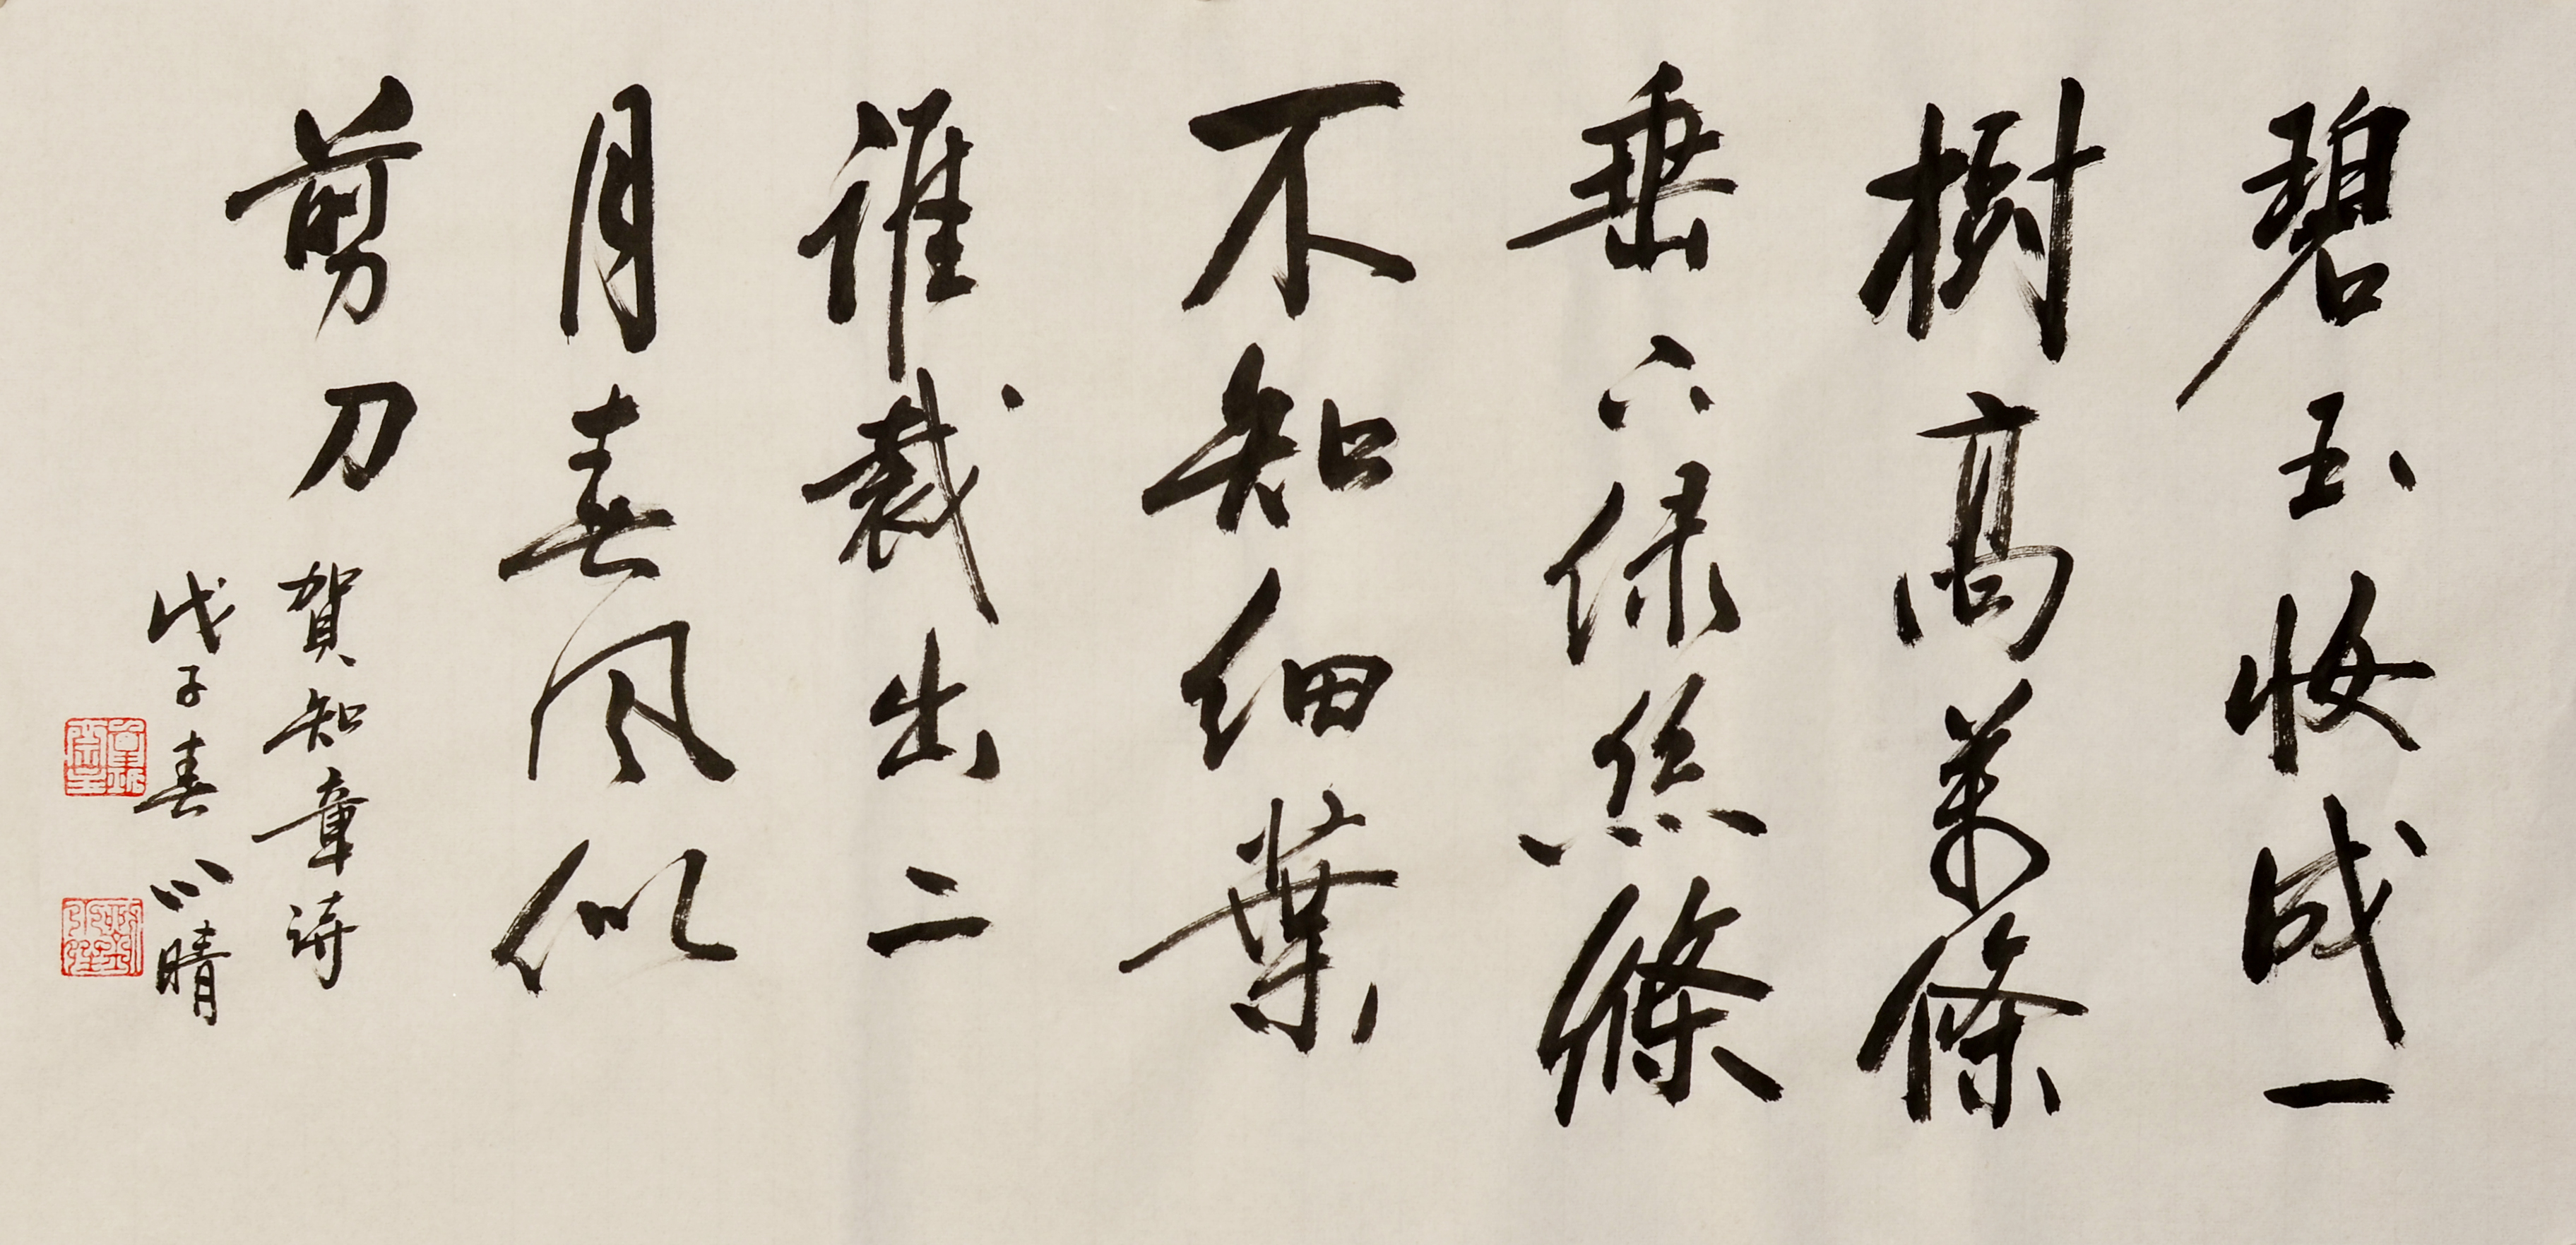 碧玉妝成一
樹高萬條
垂下绿絲絛
不知细葉
誰裁出二
月春风似
剪刀
賀知章詩
戊子春 心晴